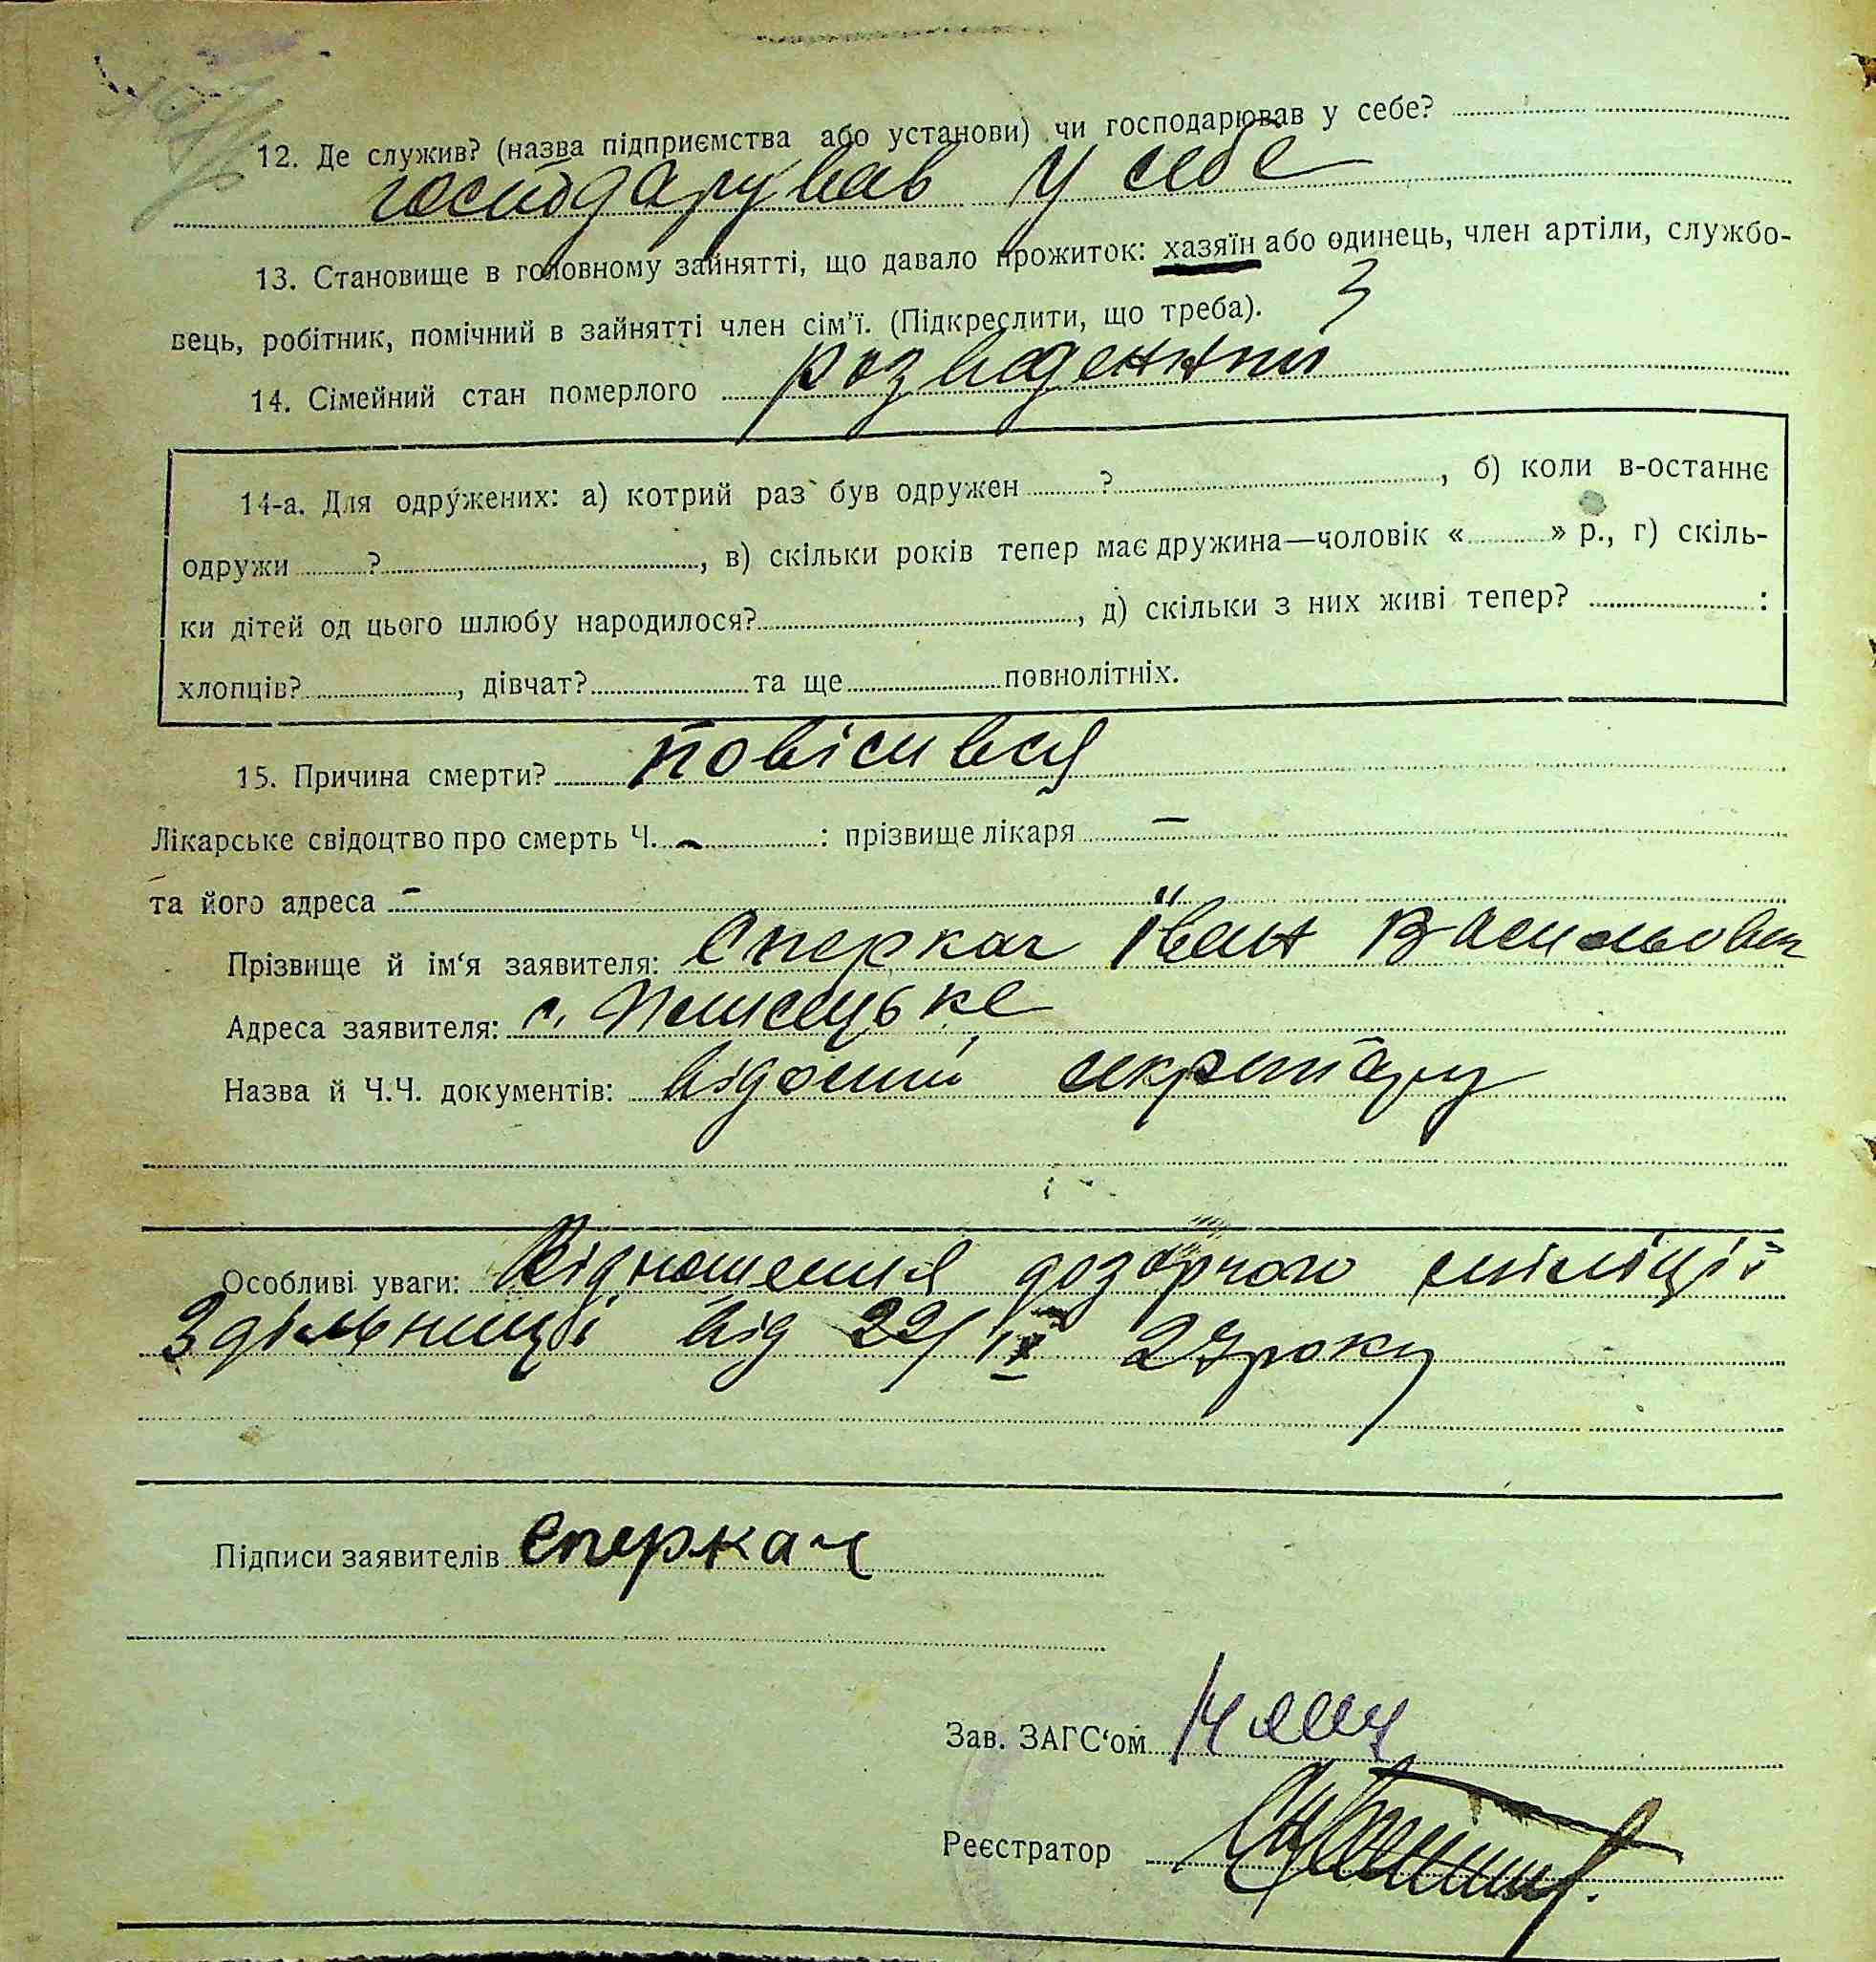 12. Де служив? (назва підприємства або установи) чи господарював у себе?
господарував у себе
13. Становище в головному зайнятті, що давало прожиток: хазяїн або одинець, член артіли, службо-
вець, робітник, помічний в зайнятті член сім'ї. (Підкреслити, що треба). 3
14. Сімейний стан померлого розведенний
14-а. Для одружених: а) котрий раз був одружен ? , б) коли в-останнє
одружи ? , в) скільки років тепер має дружина—чоловік « » р., г) скіль-
ки дітей од цього шлюбу народилося? , д) скільки з них живі тепер? :
хлопців? , дівчат? та ще повнолітніх.
15. Причина смерти? повісився
Лікарське свідоцтво про смерть Ч. – : прізвище лікаря –
та його адреса –
Прізвище й ім‘я заявителя: Сперкач Іван Васильович
Адреса заявителя: с.
Назва й Ч.Ч. документів: відомий секретару
Особливі уваги: Відношення дозорчого міліції
3 дільниці від 22/IX 27 року
Підписи заявителів Сперкач
Зав. ЗАГС‘ом
Реєстратор